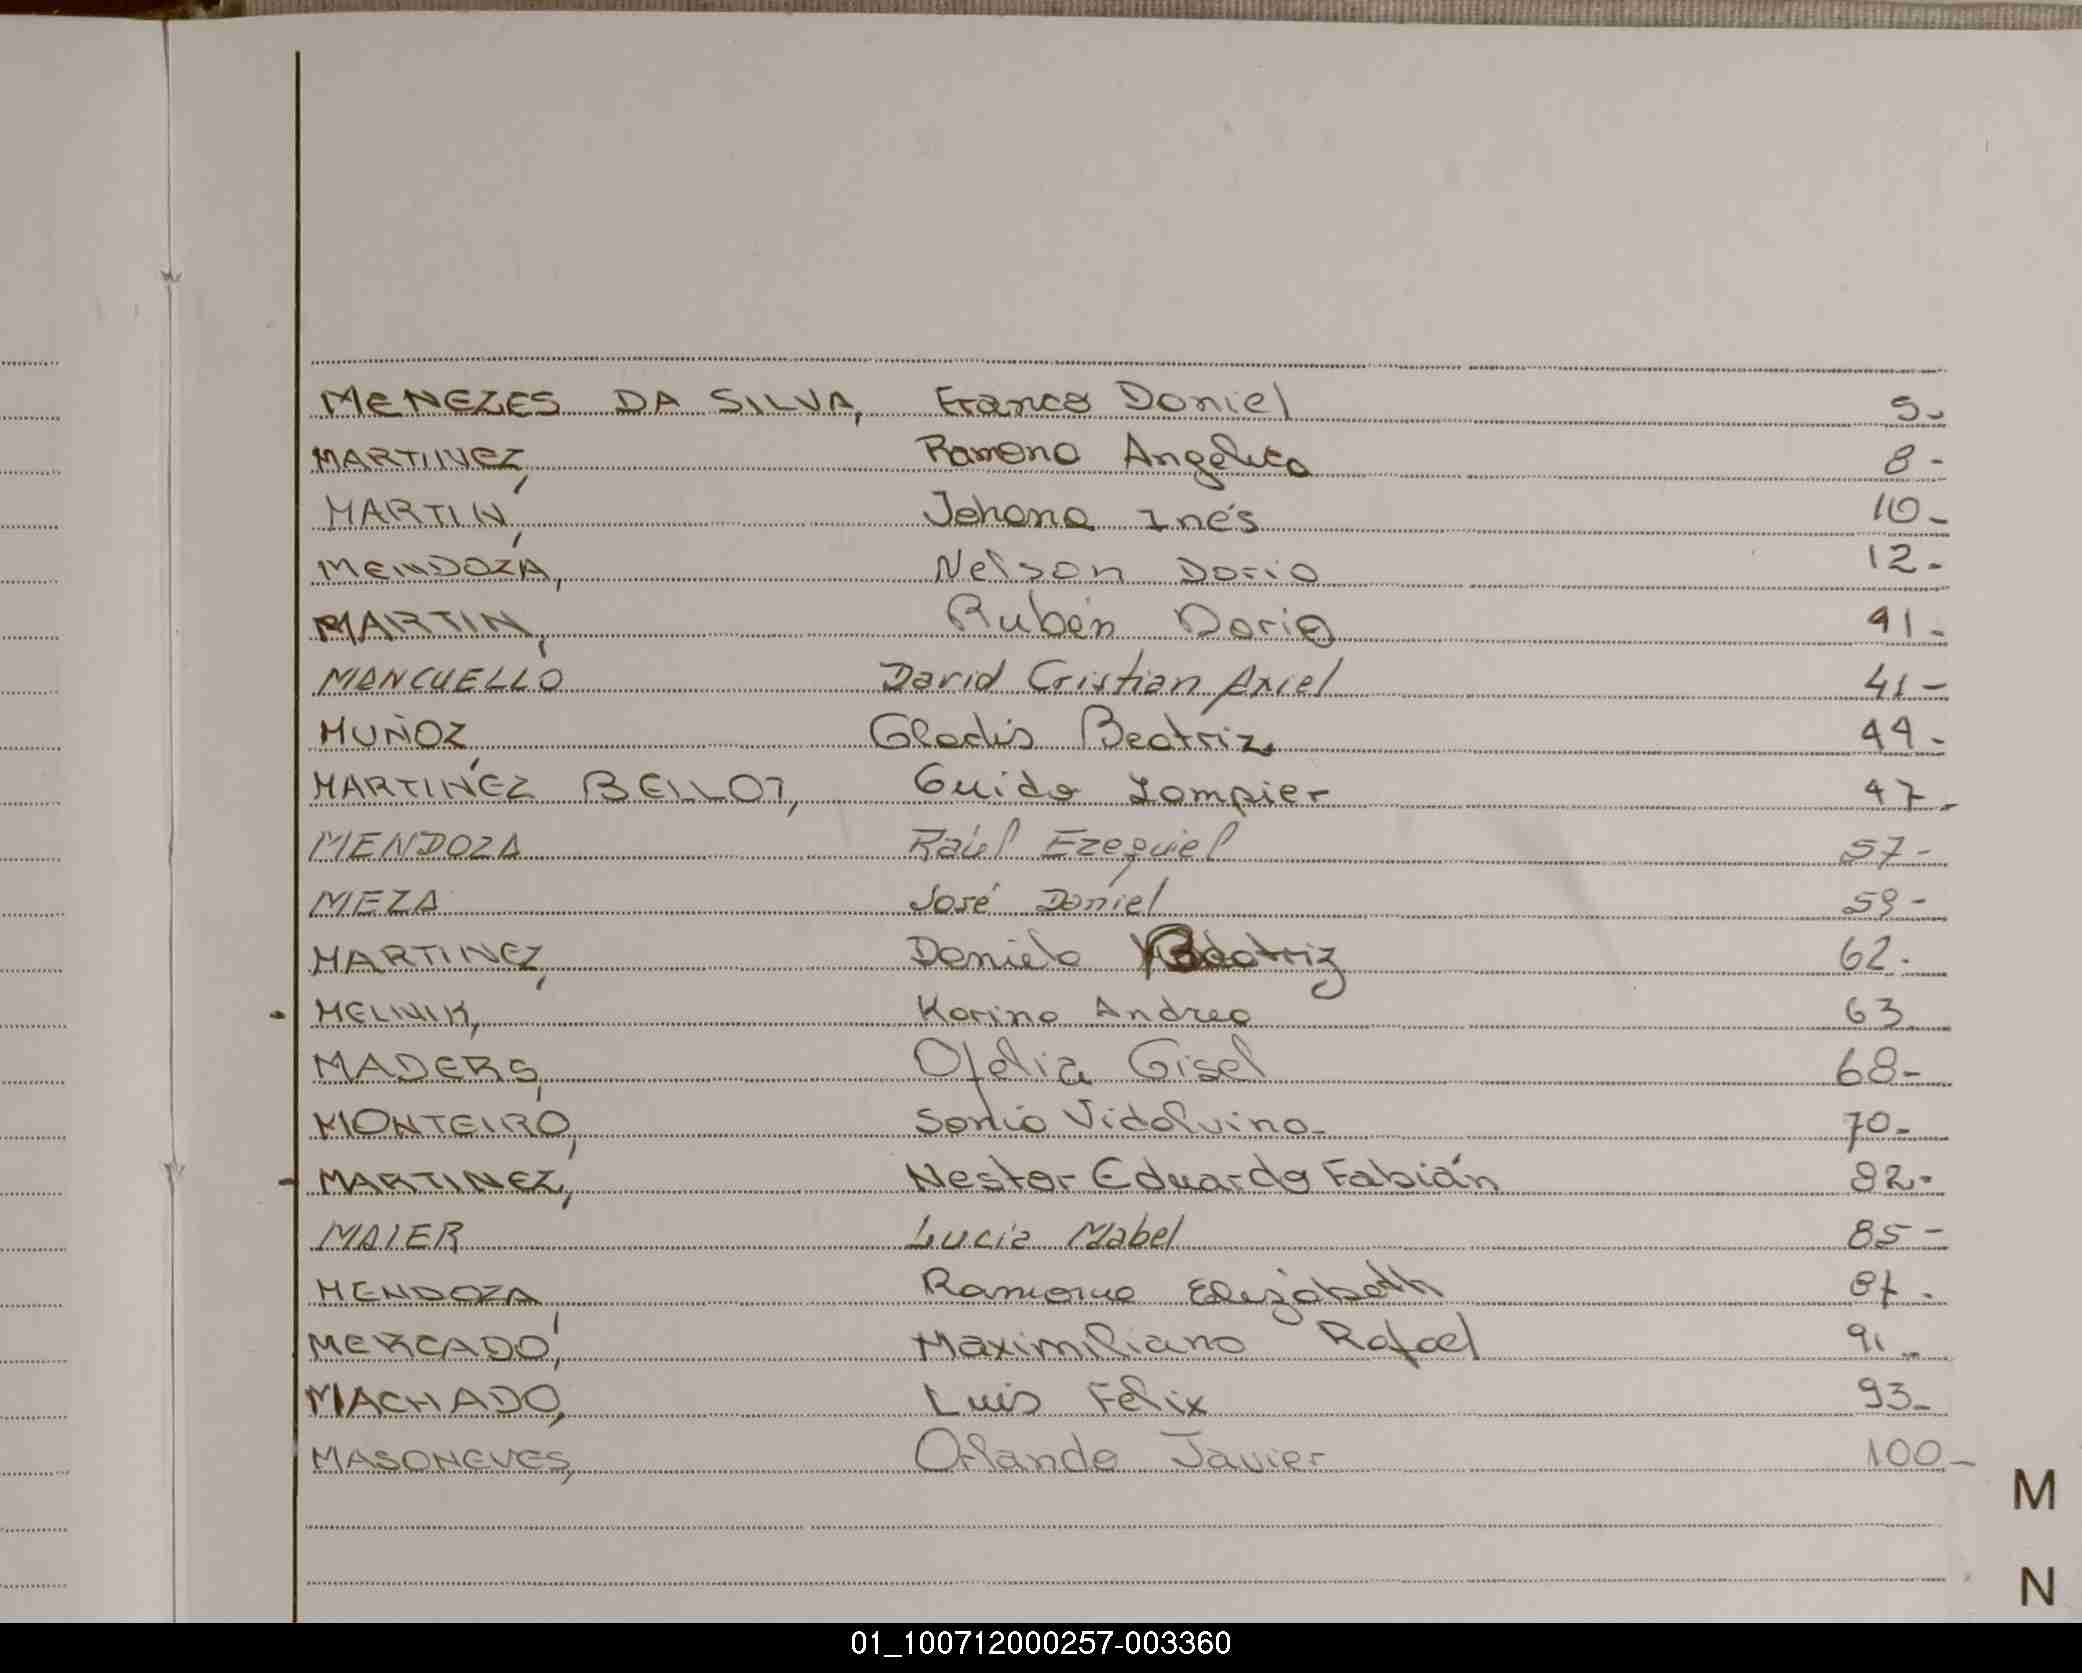 MENEZES DA SILVA, Franco Daniel 5-
MARTINEZ, Ramona Angélica 8-
MARTIN, Johana Inés 10-
MENDOZA, Nelson Dario 12-
MARTIN, Rubén Dario 41-
MANCUELLO David Cristian Axiel 41-
MUÑOZ, Gladis Beatriz 44-
MARTINEZ BELLOT, Guido 47-
MENDOZA Raúl Ezequiel 57-
MEZA José Daniel 59-
MARTINEZ, Daniela Beatriz 62-
MELNIK, Karina Andrea 63
MADERS, Ofelia Gisel 68-
MONTEIRO, Sonia Vidalvina- 70-
MARTINEZ, Nestor Eduardo Fabián 82-
MAIER Lucia Mabel 85-
MENDOZA, Ramona Elizabeth 87-
MERCADO, Maximiliano Rafael 91-
MACHADO, Luis Felix 93-
MASONEVES, Orlando Javier 100-
M
N
01_100712000257-003360